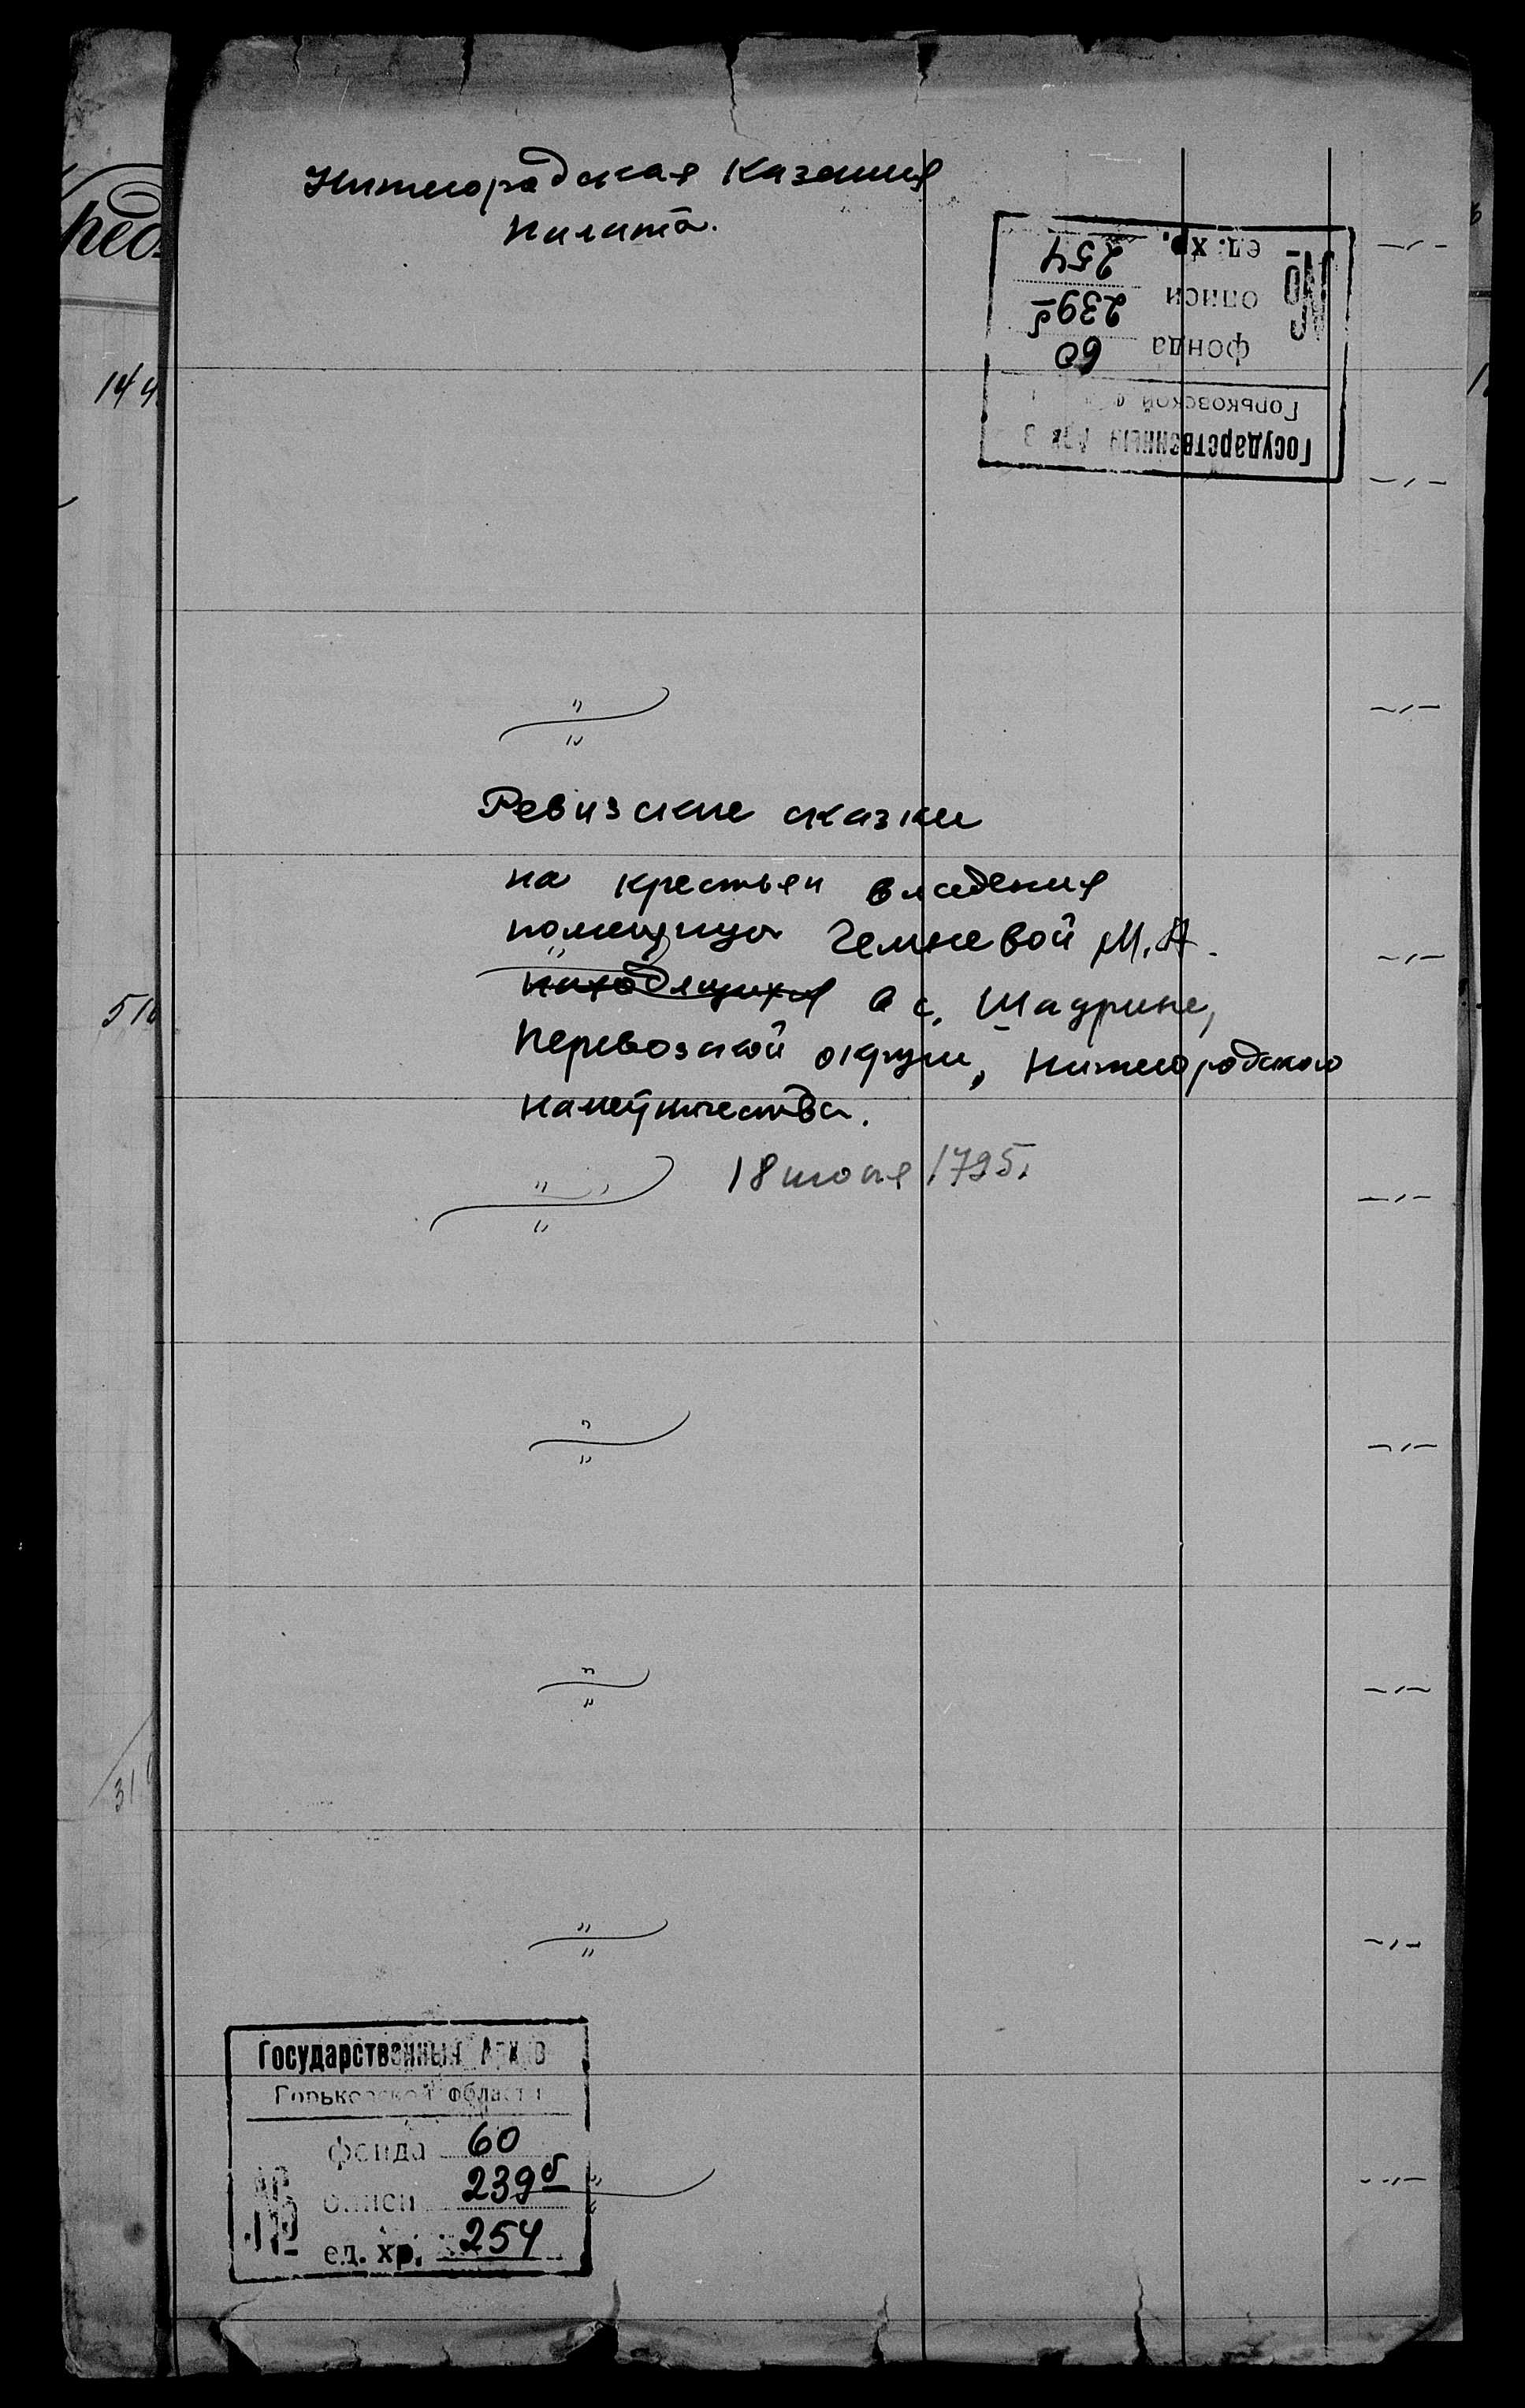 Нижегородская казенная
палата.
№
фонда 60
описи 239б
ед. хр. 254
Государственный Архив
Горьковской
Ревизские сказки
на крестьян владения
помещицы М. А.
находящихся в с. Шадрине,
Перевозской округи, Нижегородского
наместничества.
18 июля 1795.
144
510
31
Государственный Архив
Горьковской области
№
фонда 60
описи 239б
ед. хр. 254